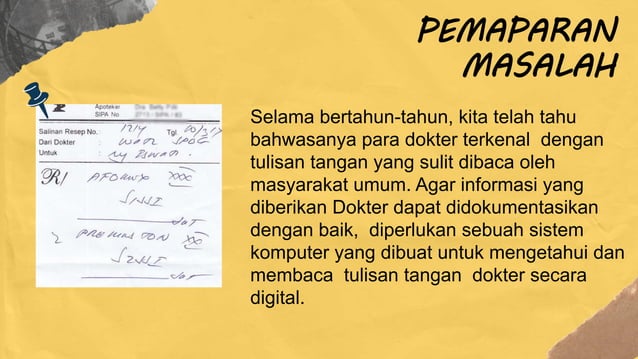 PEMAPARAN
MASALAH
Apoteker
SIPA No
Salinan Resep No. :
Tgl.
Dari Dokter :
Untuk :
R/
XXX
2
XXX
Selama bertahun-tahun, kita telah tahu
bahwasanya para dokter terkenal dengan
tulisan tangan yang sulit dibaca oleh
masyarakat umum. Agar informasi yang
diberikan Dokter dapat didokumentasikan
dengan baik, diperlukan sebuah sistem
komputer yang dibuat untuk mengetahui dan
membaca tulisan tangan dokter secara
digital.